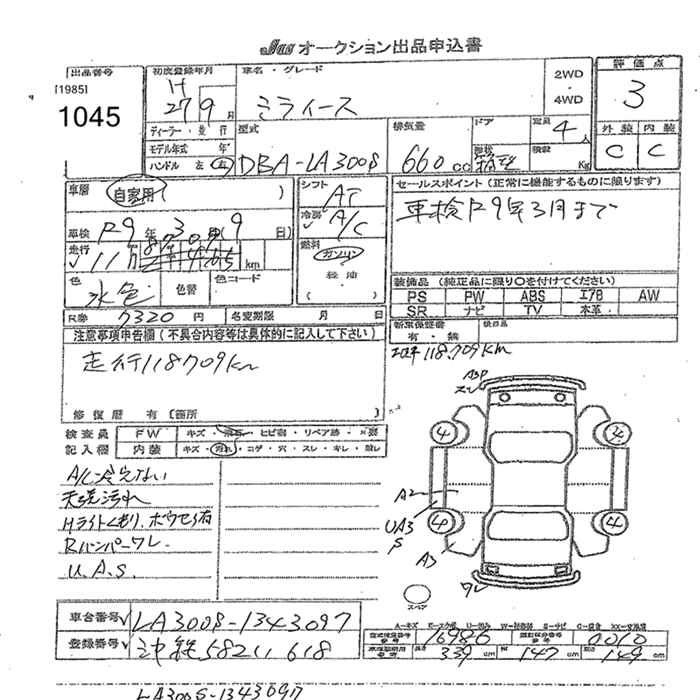 Jaa オークション出品申込書
出品番号
[1985]
1045
初度登録年月
H
27 9 月
ディーラー・並行
モデル年式 年
ハンドル 左 右
車名・グレード
ミライース
2WD
・
4WD
型式
DBA-LA300S
排気量
660 cc
ドア
形状
定員
4人
積載
Kg
評価点
3
外装 内装
C C
車歴
自家用 ( )
車検 R9年3月9日
走行 11万
km
色
水色
色替
色コード
シフト
AT
冷房
A/C
燃料
ガソリン
軽油
( )
セールスポイント (正常に機能するものに限ります)
車検R9年3月まで
装備品 (純正品に限り○を付けてください)
PS PW ABS エアB AW
SR ナビ TV 本革
R券 7320 円 名変期限 月 日
新車保証書
有・無
注意事項申告欄 (不具合内容等は具体的に記入して下さい)
走行118709km
118,709km
修復歴 有 〔箇所 〕
検査員 FW キズ・ ・ヒビ割・リペア跡・
記入欄 内装 キズ・汚れ・コゲ・穴・スレ・キレ・
A/C冷えない
天洗汚れ
Hライトくもり、ボウセイ有
Rバンパーワレ
U.A.S.
A2
UA3
S
A3
ワレ
4 4
4 4
スペア
車台番号 LA300S-1343097
登録番号 沖縄582い618
A-キズ
型式指定番号 16986 類別区分番号 0010
長さ 339 cm 幅 147 cm 高さ 149 cm
LA300S-1343097